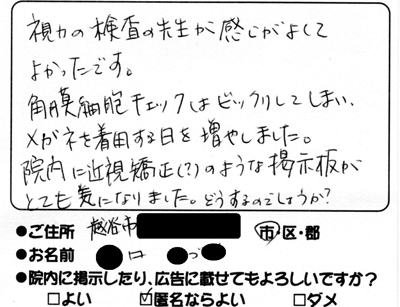 視力の検査の先生が感じがよくて
よかったです。
角膜細胞チェックはビックリしてしまい、
メガネを着用する日を増やしました。
院内に近視矯正(?)のような掲示板が
とても気になりました。どうするのでしょうか?
●ご住所 越谷市 市・区・郡
●お名前 口 づ
●院内に掲示したり、広告に載せてもよろしいですか?
□よい ☑匿名ならよい □ダメ